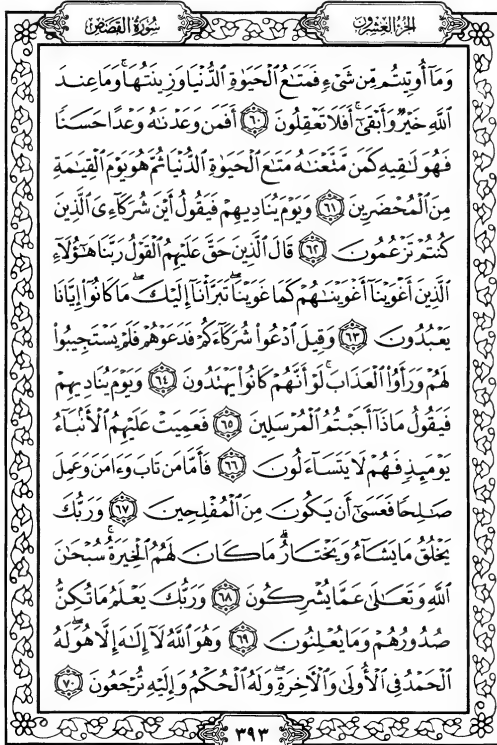 سُورَةُ القَصَصِ
الجُزْءُ العِشْرُونَ
وَمَآ أُوتِيتُم مِّن شَىْءٍ فَمَتَٰعُ الْحَيَوٰةِ الدُّنْيَا وَزِينَتُهَا ۚ وَمَا عِندَ
اللَّهِ خَيْرٌ وَأَبْقَىٰٓ ۚ أَفَلَا تَعْقِلُونَ ٦٠ أَفَمَن وَعَدْنَٰهُ وَعْدًا حَسَنًا
فَهُوَ لَٰقِيهِ كَمَن مَّتَّعْنَٰهُ مَتَٰعَ الْحَيَوٰةِ الدُّنْيَا ثُمَّ هُوَ يَوْمَ الْقِيَٰمَةِ
مِنَ الْمُحْضَرِينَ ٦١ وَيَوْمَ يُنَادِيهِمْ فَيَقُولُ أَيْنَ شُرَكَآءِىَ الَّذِينَ
كُنتُمْ تَزْعُمُونَ ٦٢ قَالَ الَّذِينَ حَقَّ عَلَيْهِمُ الْقَوْلُ رَبَّنَا هَٰٓؤُلَآءِ
الَّذِينَ أَغْوَيْنَآ أَغْوَيْنَٰهُمْ كَمَا غَوَيْنَا ۖ تَبَرَّأْنَآ إِلَيْكَ ۖ مَا كَانُوٓا۟ إِيَّانَا
يَعْبُدُونَ ٦٣ وَقِيلَ ادْعُوا۟ شُرَكَآءَكُمْ فَدَعَوْهُمْ فَلَمْ يَسْتَجِيبُوا۟
لَهُمْ وَرَأَوُا۟ الْعَذَابَ ۚ لَوْ أَنَّهُمْ كَانُوا۟ يَهْتَدُونَ ٦٤ وَيَوْمَ يُنَادِيهِمْ
فَيَقُولُ مَاذَآ أَجَبْتُمُ الْمُرْسَلِينَ ٦٥ فَعَمِيَتْ عَلَيْهِمُ الْأَنۢبَآءُ
يَوْمَئِذٍ فَهُمْ لَا يَتَسَآءَلُونَ ٦٦ فَأَمَّا مَن تَابَ وَءَامَنَ وَعَمِلَ
صَٰلِحًا فَعَسَىٰٓ أَن يَكُونَ مِنَ الْمُفْلِحِينَ ٦٧ وَرَبُّكَ
يَخْلُقُ مَا يَشَآءُ وَيَخْتَارُ ۗ مَا كَانَ لَهُمُ الْخِيَرَةُ ۚ سُبْحَٰنَ
اللَّهِ وَتَعَٰلَىٰ عَمَّا يُشْرِكُونَ ٦٨ وَرَبُّكَ يَعْلَمُ مَا تُكِنُّ
صُدُورُهُمْ وَمَا يُعْلِنُونَ ٦٩ وَهُوَ اللَّهُ لَآ إِلَٰهَ إِلَّا هُوَ ۖ لَهُ
الْحَمْدُ فِى الْأُولَىٰ وَالْءَاخِرَةِ ۖ وَلَهُ الْحُكْمُ وَإِلَيْهِ تُرْجَعُونَ ٧٠
٣٩٣